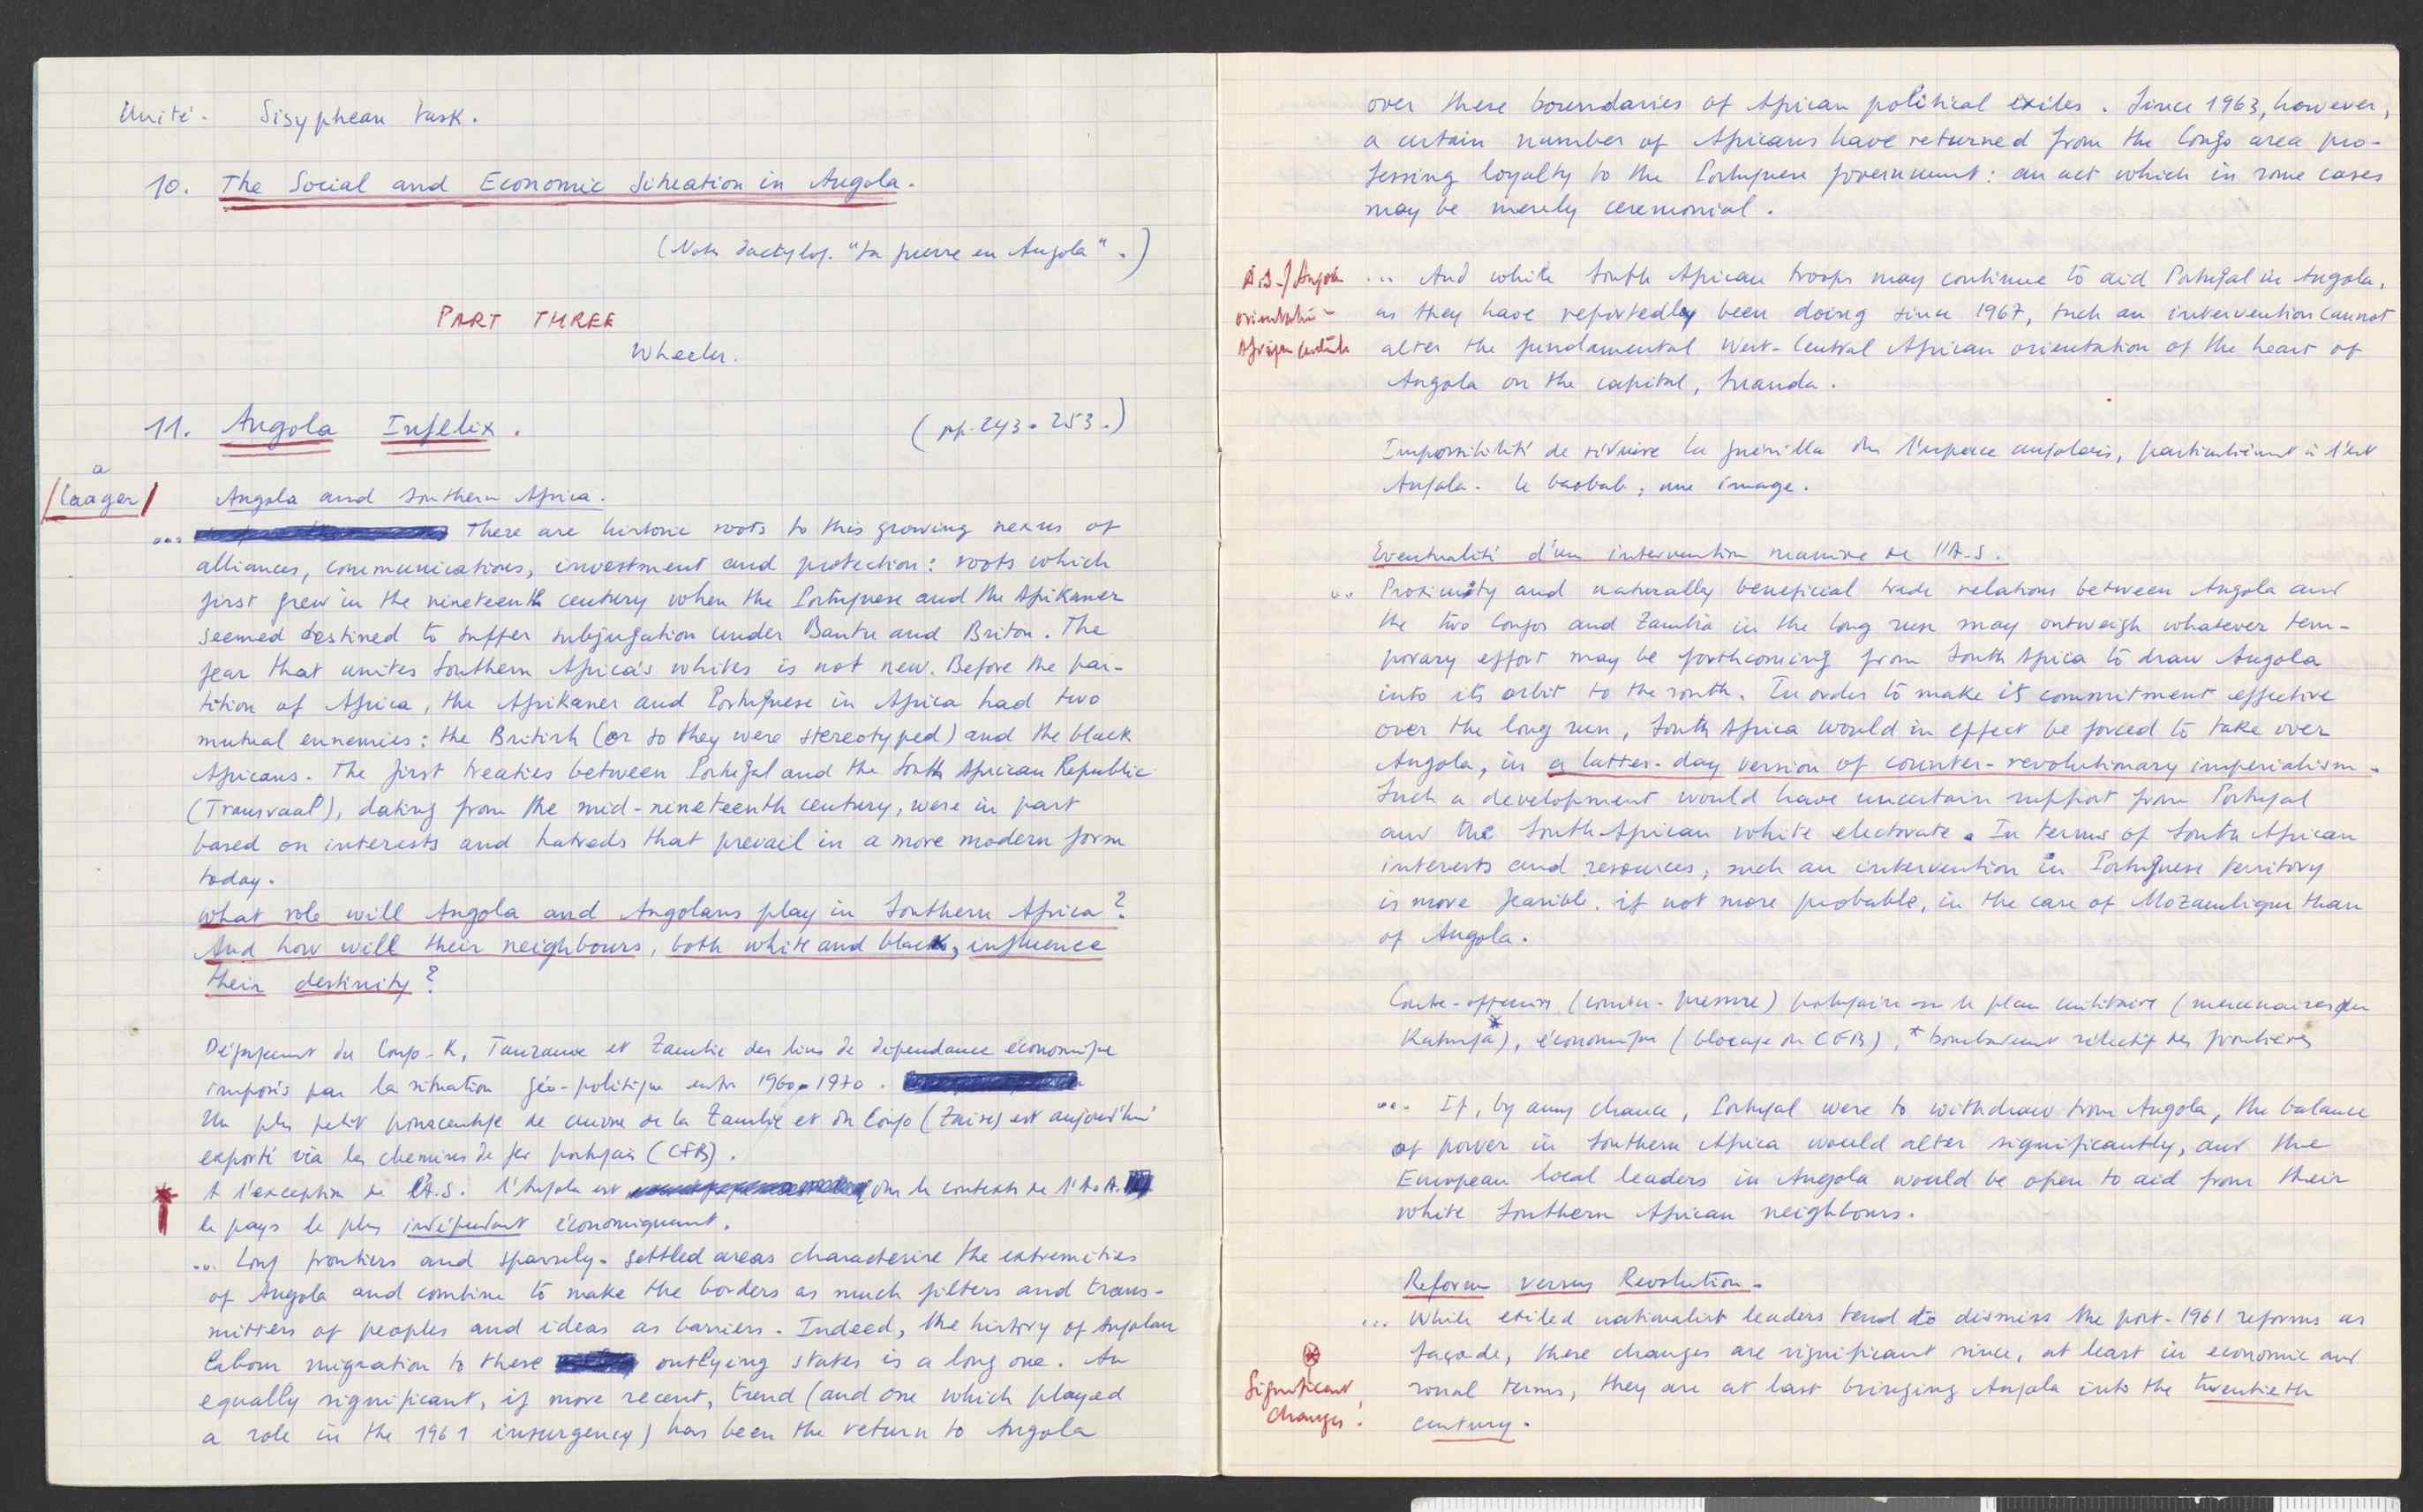 Unité. Sisyphean task.
10. The Social and Economic Situation in Angola.
(Note dactylog. "La guerre en Angola".)
PART THREE
Wheeler.
11. Angola Infelix. (pp. 243-253.)
a
/laager/
Angola and Southern Africa.
... There are historic roots to this growing nexus of
alliances, communications, investment and protection: roots which
first grew in the nineteenth century when the Portuguese and the Afrikaner
seemed destined to suffer subjugation under Bantu and Briton. The
fear that unites Southern Africa's whites is not new. Before the par-
tition of Africa, the Afrikaner and Portuguese in Africa had two
mutual ennemies: the British (or so they were stereotyped) and the black
Africans. The first treaties between Portugal and the South African Republic
(Transvaal), dating from the mid-nineteenth century, were in part
based on interests and hatreds that prevail in a more modern form
today.
What role will Angola and Angolans play in Southern Africa?
And how will their neighbours, both white and black, influence
their destinity?
Dégagement du Congo-K, Tanzanie et Zambie des liens de dépendance économique
imposés par la situation géo-politique entre 1960-1970.
Un plus petit pourcentage de cuivre de la Zambie et du Congo (Zaïre) est aujourd'hui
exporté via les chemins de fer portugais (CFB).
A l'exception de l'A.S. l'Angola est ds le contexte de l'A.A.
le pays le plus indépendant économiquement.
... Long frontiers and sparsely-settled areas characterise the extremities
of Angola and combine to make the borders as much filters and trans-
mitters of peoples and ideas as barriers. Indeed, the history of Angolan
labour migration to these outlying states is a long one. An
equally significant, if more recent, trend (and one which played
a role in the 1961 insurgency) has been the return to Angola
over these boundaries of African political exiles. Since 1963, however,
a certain number of Africans have returned from the Congo area pro-
fessing loyalty to the Portuguese government: an act which in some cases
may be merely ceremonial.
A.S./Angola
orientation
Afrique centrale
... And while South African troops may continue to aid Portugal in Angola,
as they have reportedly been doing since 1967, such an intervention cannot
alter the fundamental West-Central African orientation of the heart of
Angola on the capital, Luanda.
Impossibilité de réduire la guérilla ds l'espace angolais, particulièrement à l'est
Angola. Le baobab, une image.
Eventualité d'une intervention massive de l'A.S.
... Proximity and naturally beneficial trade relations between Angola and
the two Congos and Zambia in the long run may outweigh whatever tem-
porary effort may be forthcoming from South Africa to draw Angola
into its orbit to the south. In order to make its commitment effective
over the long run, South Africa would in effect be forced to take over
Angola, in a latter-day version of counter-revolutionary imperialism.
Such a development would have uncertain support from Portugal
and the South African white electorate. In terms of South African
interests and resources, such an intervention in Portuguese territory
is more feasible, if not more probable, in the case of Mozambique than
of Angola.
Contre-offensive (contre-pressure) portugaise sur le plan militaire (mercenaires du
Katanga*), économique (blocage du CFB), * bombardement sélectif des frontières
... If, by any chance, Portugal were to withdraw from Angola, the balance
of power in Southern Africa would alter significantly, and the
European local leaders in Angola would be open to aid from their
white Southern African neighbours.
Reform versus Revolution.
... While exiled nationalist leaders tend to dismiss the post-1961 reforms as
façade, these changes are significant since, at least in economic and
Significant
changes!
social terms, they are at last bringing Angola into the twentieth
century.